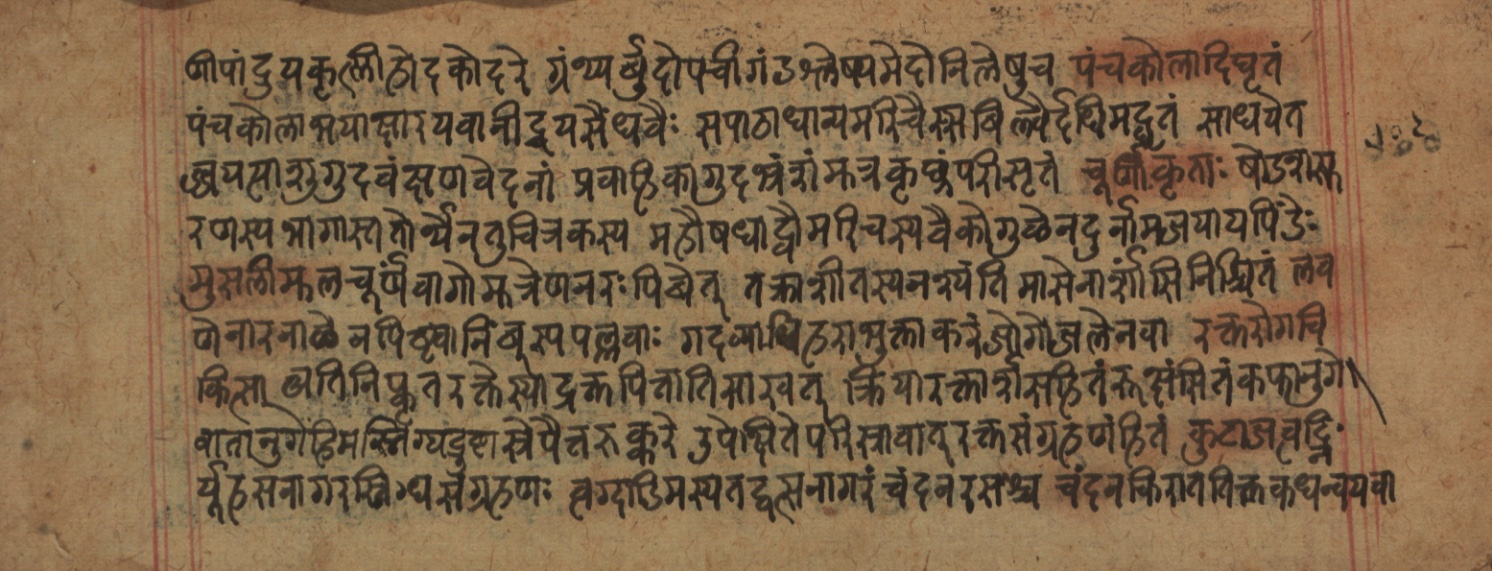 णीपांदुयकृत्प्लीहोदकोदरे ग्रंथ्यर्बुदोपचीगंडश्लेष्यमेदोनिलेषुच पंचकोलादिघृतं
पंचकोलाभयाक्षारयवानीद्वयसैंधवैः सपाठाधान्यमरिचैस्सबिल्वैर्दधिमद्घृतं साधयेत
ज्जयत्याशुगुदवंक्षणवेदनां प्रवाहिकागुदभ्रंशंमूत्रकृछ्रंपरीसृतं चूर्णीकृताः षोडशसू
रणस्य भागास्ततोर्ध्येनतुचित्रकस्य महौषधाद्वौमरिचस्यचैकोगुळेनदुर्नामजयायपिंडेः
मुसलीमूलचूर्णंवागोमूत्रेणनरःपिबेत् तक्राशीतस्यनश्यंति मासेनार्शांसिनिश्चितं लव
णेनारनाळेनपिष्ट्वानिंबस्यपल्लवाः गदव्याधिहराभुक्ताकरंजोगोजलेनवा रक्तरोगचि
कित्सा अतिनिष्कृतरक्तेस्याद्रक्तपित्तातिसारवत् क्रियारक्तार्शसहितंरूक्षंसितंकफानुगे
वातानुगेहिमस्निग्यदुष्टास्रेपैत्तरुक्करे उपेक्षितेपरिस्रावात्रक्तसंग्रहणंहितं कुटाजत्वङ्नि
र्यूहसनागरस्निग्धसंग्रहणः त्वग्दाडिमस्यतद्वत्सनागरंचंदनरसश्च चंदनकिराततिक्तकधन्वयवा